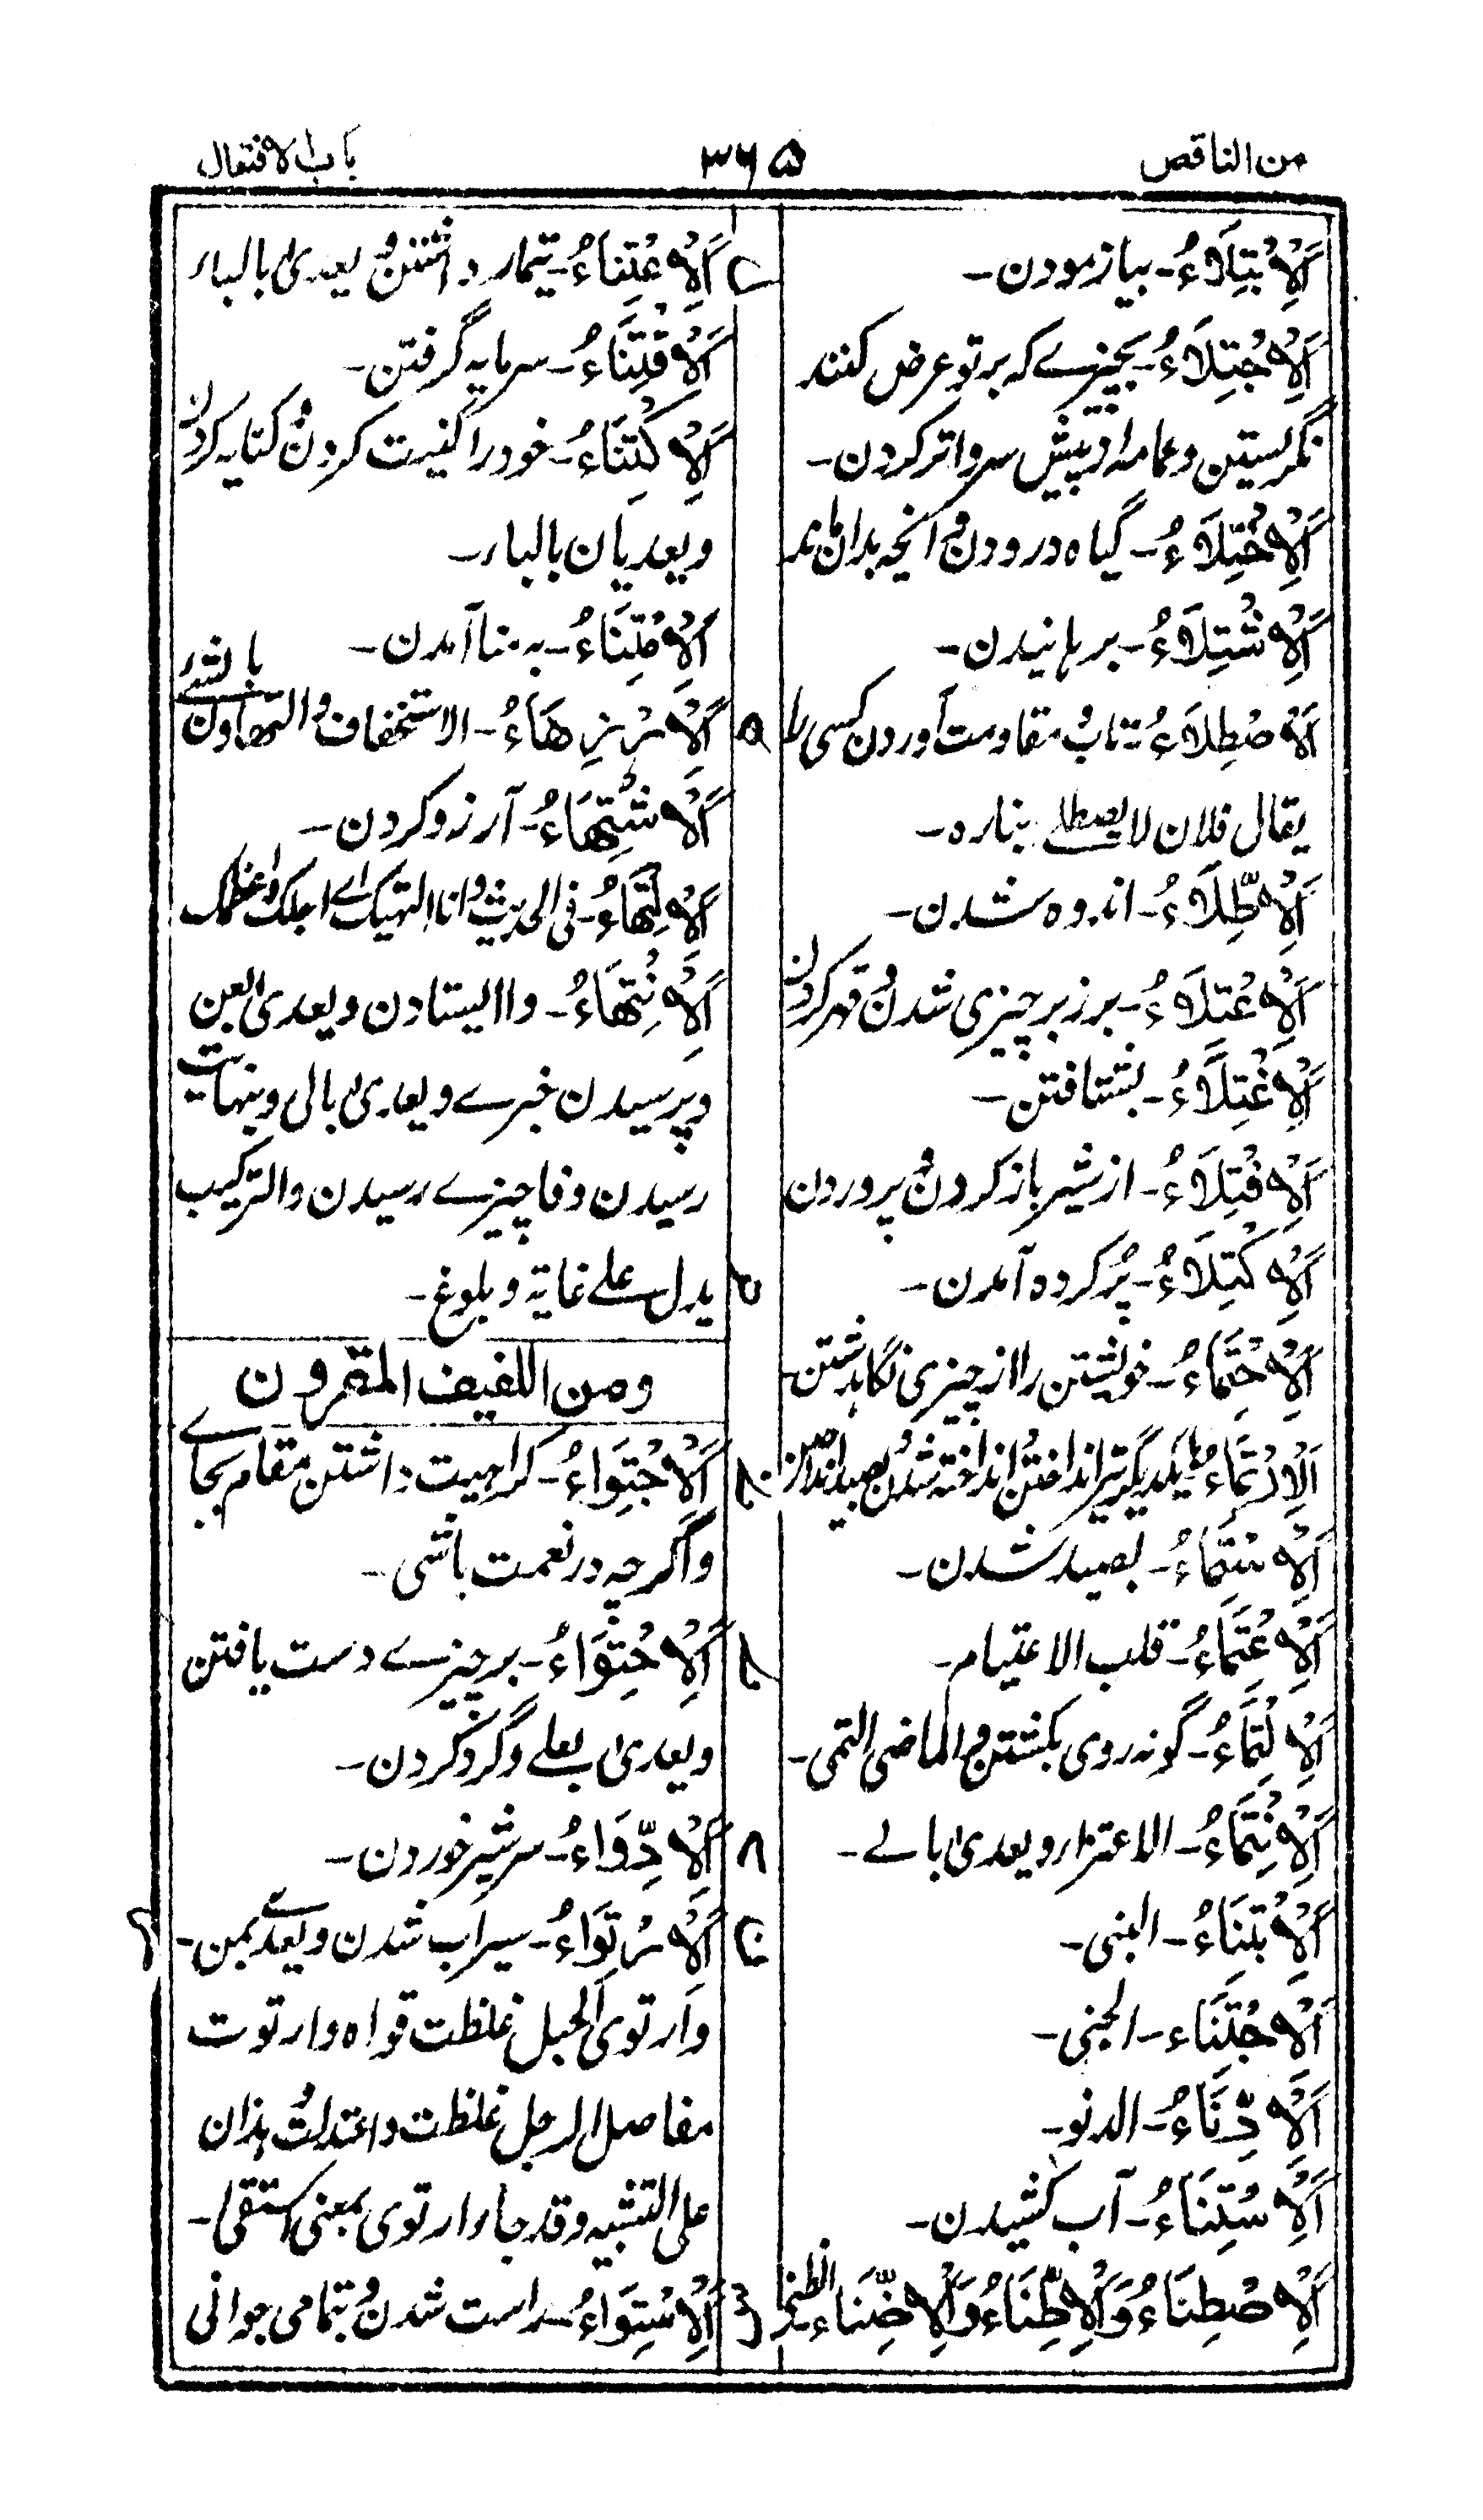 من الناقص
۳۶۵
باب الافتعال
اَلْاِبْتِلَاءُ۔ بیازمودن۔
اَلْاِجْتِلَاءُ۔ بچیزے که بر تو عرض کنند
نگریستن و عمامه از پیش سر واتر کردن۔
اَلْاِخْتِلَاءُ۔ گیاه درودن و آنچه بدان ماند
اَلْاِشْتِلَاءُ۔ برهانیدن۔
اَلْاِصْطِلَاءُ۔ تاب مقاومت آوردن کسی را
یقال فلان لا یصطلے بناره۔
اَلْاِطِّلَاءُ۔ اندوه شدن۔
اَلْاِعْتِلَاءُ۔ برزبر چیزی شدن و قهر کردن
اَلْاِغْتِلَاءُ۔ بشتافتن۔
اَلْاِفْتِلَاءُ۔ از شیر باز کردن و پروردن
اَلْاِكْتِلَاءُ۔ پُر کرده آمدن۔
اَلْاِحْتِمَاءُ۔ خویشتن را از چیزی نگاهداشتن
اَلْاِرْتِمَاءُ۔ بیکدیگر تیر انداختن و انداخته شدن و بصید انداختن
اَلْاِسْتِمَاءُ۔ بصید شدن۔
اَلْاِعْتِمَاءُ۔ قلب الاعتیام۔
اَلْاِلْتِمَاءُ۔ گونه روی بگشتن و الماضی التمی۔
اَلْاِنْتِمَاءُ۔ الاعتزاء و یعدی بالے۔
اَلْاِبْتِنَاءُ۔ البنی۔
اَلْاِجْتِنَاء۔ الجنی۔
اَلْاِدِّنَاءُ۔ الدنو۔
اَلْاِسْتِنَاءُ۔ آب کشیدن۔
اَلْاِصْطِنَاءُ وَالْاِطِّنَاءُ وَالْاِضِّنَاءُ
اَلْاِعْتِنَاءُ۔ تیمار داشتن و یعدی بالباء
اَلْاِقْتِنَاءُ۔ سرمایه گرفتن۔
اَلْاِكْتِنَاءُ۔ خود را کنیت کردن و کنایه کردن
و یعدیان بالباء۔
اَلْاِمْتِنَاءُ۔ به منا آمدن۔
اَلْاِزْدِهَاءُ۔ الاستخفاف و التهاون بالشے
اَلْاِشْتِهَاءُ۔ آرزو کردن۔
اَلْاِلْتِهَاءُ۔ فی الحدیث و انا التهیک اے اجلک و اعظمک
اَلْاِنْتِهَاءُ۔ وا ایستادن و یعدی بعن
و پرسیدن خبرے و یعدی بالی و بنهایت
رسیدن و فا چیزے رسیدن و الترکیب
یدل علے غایة و بلوغ۔
ومن اللفیف المقرون
اَلْاِجْتِوَاءُ۔ کراهیت داشتن مقام بجاے
و اگرچه در نعمت باشی۔
اَلْاِحْتِوَاءُ۔ بر چیزے دست یافتن
و یعدی بعلے و گرد کردن۔
اَلْاِدِّوَاءُ۔ سرشیر خوردن۔
اَلْاِرْتِوَاءُ۔ سیراب شدن و یعدے بمن۔
و ارتوی الحبل غلظت قواه و ارتوت
مفاصل الرجل غلظت و اعتدلت هذان
علی التشبیه و قد جاء ارتوی بمعنی استقی۔
اَلْاِسْتِوَاءُ۔ راست شدن و بتمامی جوانی